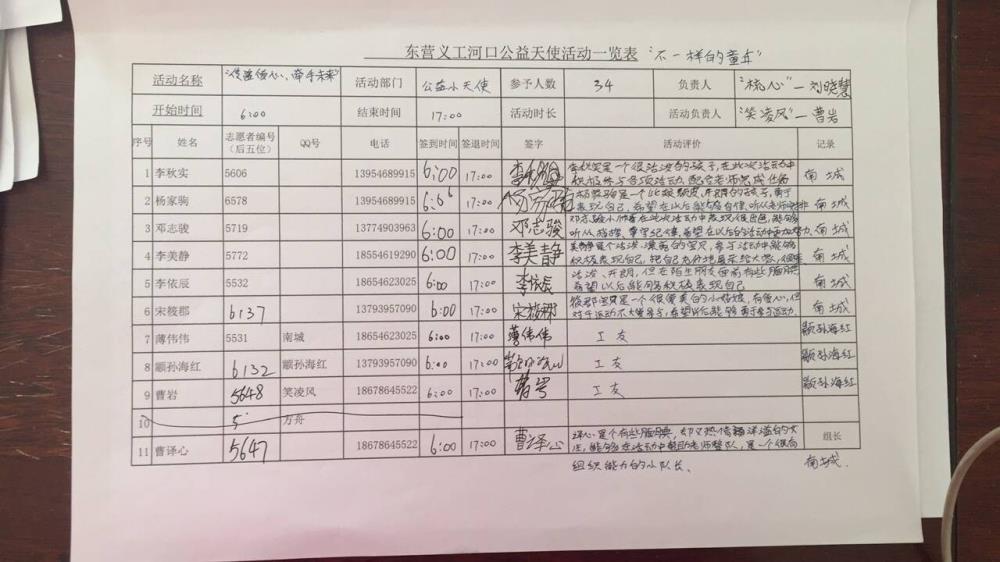 东营义工河口公益天使活动一览表 "不一样的童年"
活动名称 "传益传心、牵手未来" 活动部门 公益小天使 参予人数 34 负责人 "梳心"—刘晓慧
开始时间 6:00 结束时间 17:00 活动时长 活动负责人 "笑凌风"—曹岩
序号 姓名 志愿者编号（后五位） QQ号 电话 签到时间 签退时间 签字 活动评价 记录
1 李秋实 5606 13954689915 6:00 17:00 李秋实 是一个很活泼的孩子,在此次活动中
积极参与各项活动,配合老师完成任务 南城
2 杨家驹 6578 13954689915 6:00 17:00 杨家驹 是一个比较 的孩子,勇于
表现自己,希望在以后能够自律,听从老师安排 南城
3 邓志骏 5719 13774903963 6:00 17:00 邓志骏 邓志骏小帅哥在此次活动中表现很出色,能够
听从指挥、遵守纪律,希望在以后的活动中再加努力 南城
4 李美静 5772 18554619290 6:00 17:00 李美静 美静是个活泼、漂亮的宝贝,参与活动中能够
积极表现自己,把自己充分地展示给大家,很棒 南城
5 李依辰 5532 18654623025 6:00 17:00 李依辰 活泼、开朗,但在陌生朋友面前有些腼腆
希望以后能够积极表现自己 南城
6 宋筱郡 6137 13793957090 6:00 17:00 宋筱郡 筱郡宝贝是一个很优美的小姑娘,有信心,但
对于运动不大爱参与,希望以后能够勇于参与运动 南城
7 薄伟伟 5531 南城 18654623025 6:00 17:00 薄伟伟 工友 颛孙海红
8 颛孙海红 6132 颛孙海红 13793957090 6:00 17:00 颛孙海红 工友 颛孙海红
9 曹岩 5648 笑凌风 18678645522 6:00 17:00 曹岩 工友 颛孙海红
10 5 方舟
11 曹译心 5647 18678645522 6:00 17:00 曹译心 译心是个有些腼腆,却又热情 洋溢的女
生,能够在活动中帮助老师整队,是一个很有 组长
组织能力的小队长. 南城.